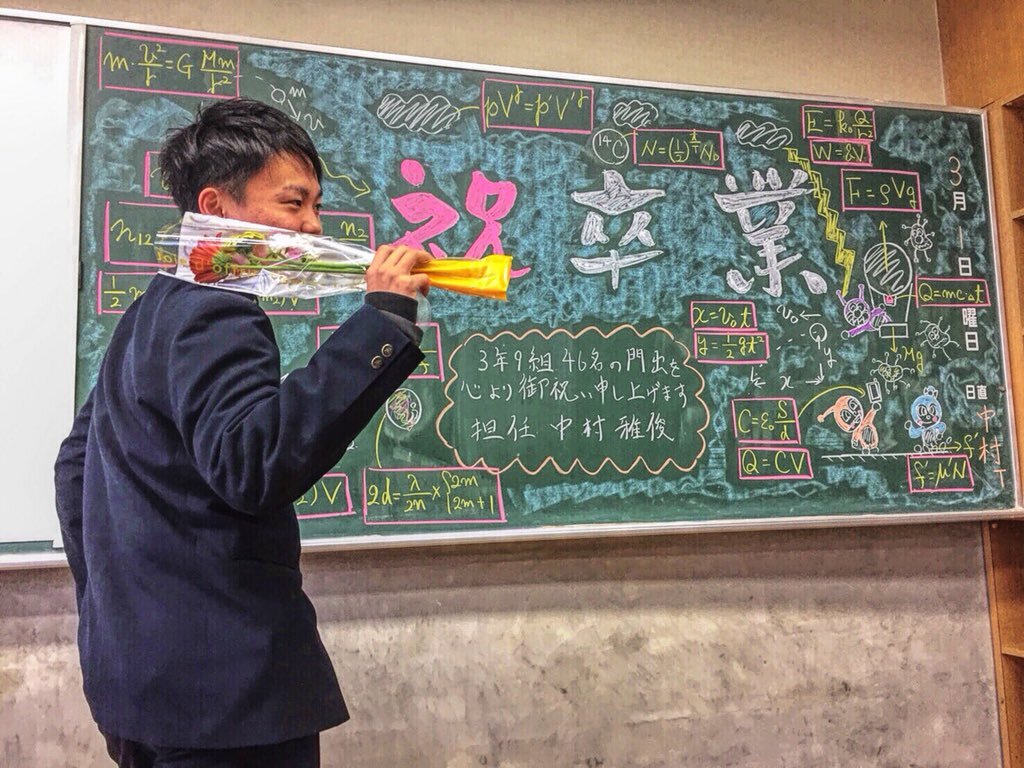 m・v²/r=G Mm/r²
m
pV^γ=p'V'^γ
¹⁴C
N=(1/2)^(t/T)N₀
E=k₀Q/r²
W=qV
F=ρVg
祝 卒業
3月1日 曜日
日直 中村
n₁₂
n₂
1/2 m
Q=mc・Δt
x=v₀t
y=1/2gt²
v₀
y
x
Mg
3年9組46名の門出を
心より御祝い申し上げます
担任 中村 雅俊
C=ε₀S/d
Q=CV
f'
f'=μ'N
)V
2d=λ/2n×{2m
2m+1